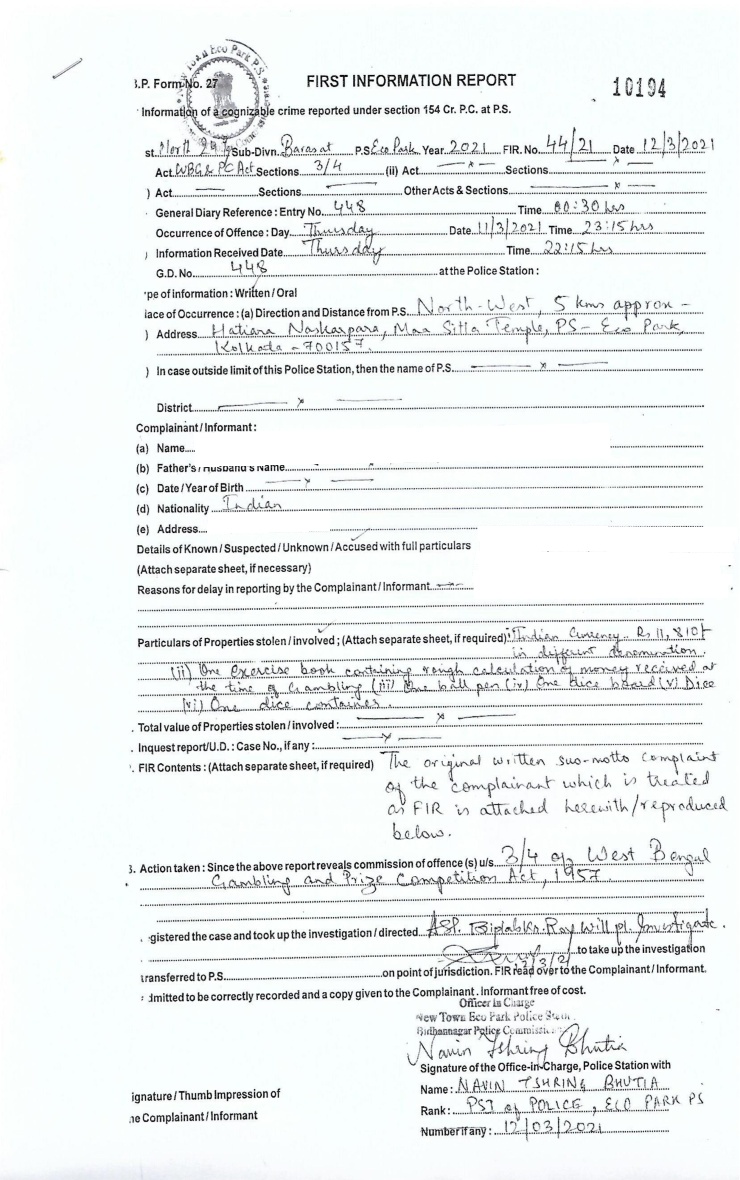 New Town Eco Park P.S.
.P. Form No. 27
FIRST INFORMATION REPORT
10194
Information of a cognizable crime reported under section 154 Cr. P.C. at P.S.
st. North 24 Sub-Divn. Barasat P.S Eco Park Year 2021 FIR. No. 44/21 Date 12/3/2021
Act WBG & PC Act Sections 3/4 (ii) Act — x — Sections — x —
) Act — Sections — Other Acts & Sections — x —
General Diary Reference : Entry No. 448 Time 00:30 hrs
Occurrence of Offence : Day Thursday Date 11/3/2021 Time 23:15 hrs
) Information Received Date Thursday Time 22:15 hrs
G.D. No. 448 at the Police Station :
pe of information : Written / Oral
lace of Occurrence : (a) Direction and Distance from P.S. North-West, 5 kms approx -
) Address Hatiara Naskarpara, Maa Sitla Temple, PS - Eco Park,
Kolkata - 700157.
) In case outside limit of this Police Station, then the name of P.S. — x —
District — x —
Complainant / Informant :
(a) Name
(b) Father's / Husband's Name
(c) Date / Year of Birth — x —
(d) Nationality Indian
(e) Address
Details of Known / Suspected / Unknown / Accused with full particulars
(Attach separate sheet, if necessary)
Reasons for delay in reporting by the Complainant / Informant
Particulars of Properties stolen / involved ; (Attach separate sheet, if required) Indian Currency Rs 11,810/-
in different denomination.
(ii) One exercise book containing rough calculation of money received at
the time of Gambling (iii) One ball pen (iv) One dice board (v) Dice
(vi) One dice container.
. Total value of Properties stolen / involved : — x —
. Inquest report/U.D. : Case No., if any : — x —
. FIR Contents : (Attach separate sheet, if required) The original written suo-motto complaint
of the complainant which is treated
as FIR is attached herewith/reproduced
below.
3. Action taken : Since the above report reveals commission of offence (s) u/s 3/4 of West Bengal
Gambling and Prize Competition Act, 1957
gistered the case and took up the investigation / directed ASI. Biplab Kr. Roy will pl. Investigate.
12/3/21 to take up the investigation
transferred to P.S. on point of jurisdiction. FIR read over to the Complainant / Informant.
dmitted to be correctly recorded and a copy given to the Complainant . Informant free of cost.
Officer in Charge
New Town Eco Park Police Station
Bidhannagar Police Commiss
Navin Tshring Bhutia
Signature of the Office-in-Charge, Police Station with
Name : NAVIN TSHRING BHUTIA
ignature / Thumb Impression of
Rank : PSI of POLICE, ECO PARK PS
he Complainant / Informant
Number if any : 12/03/2021